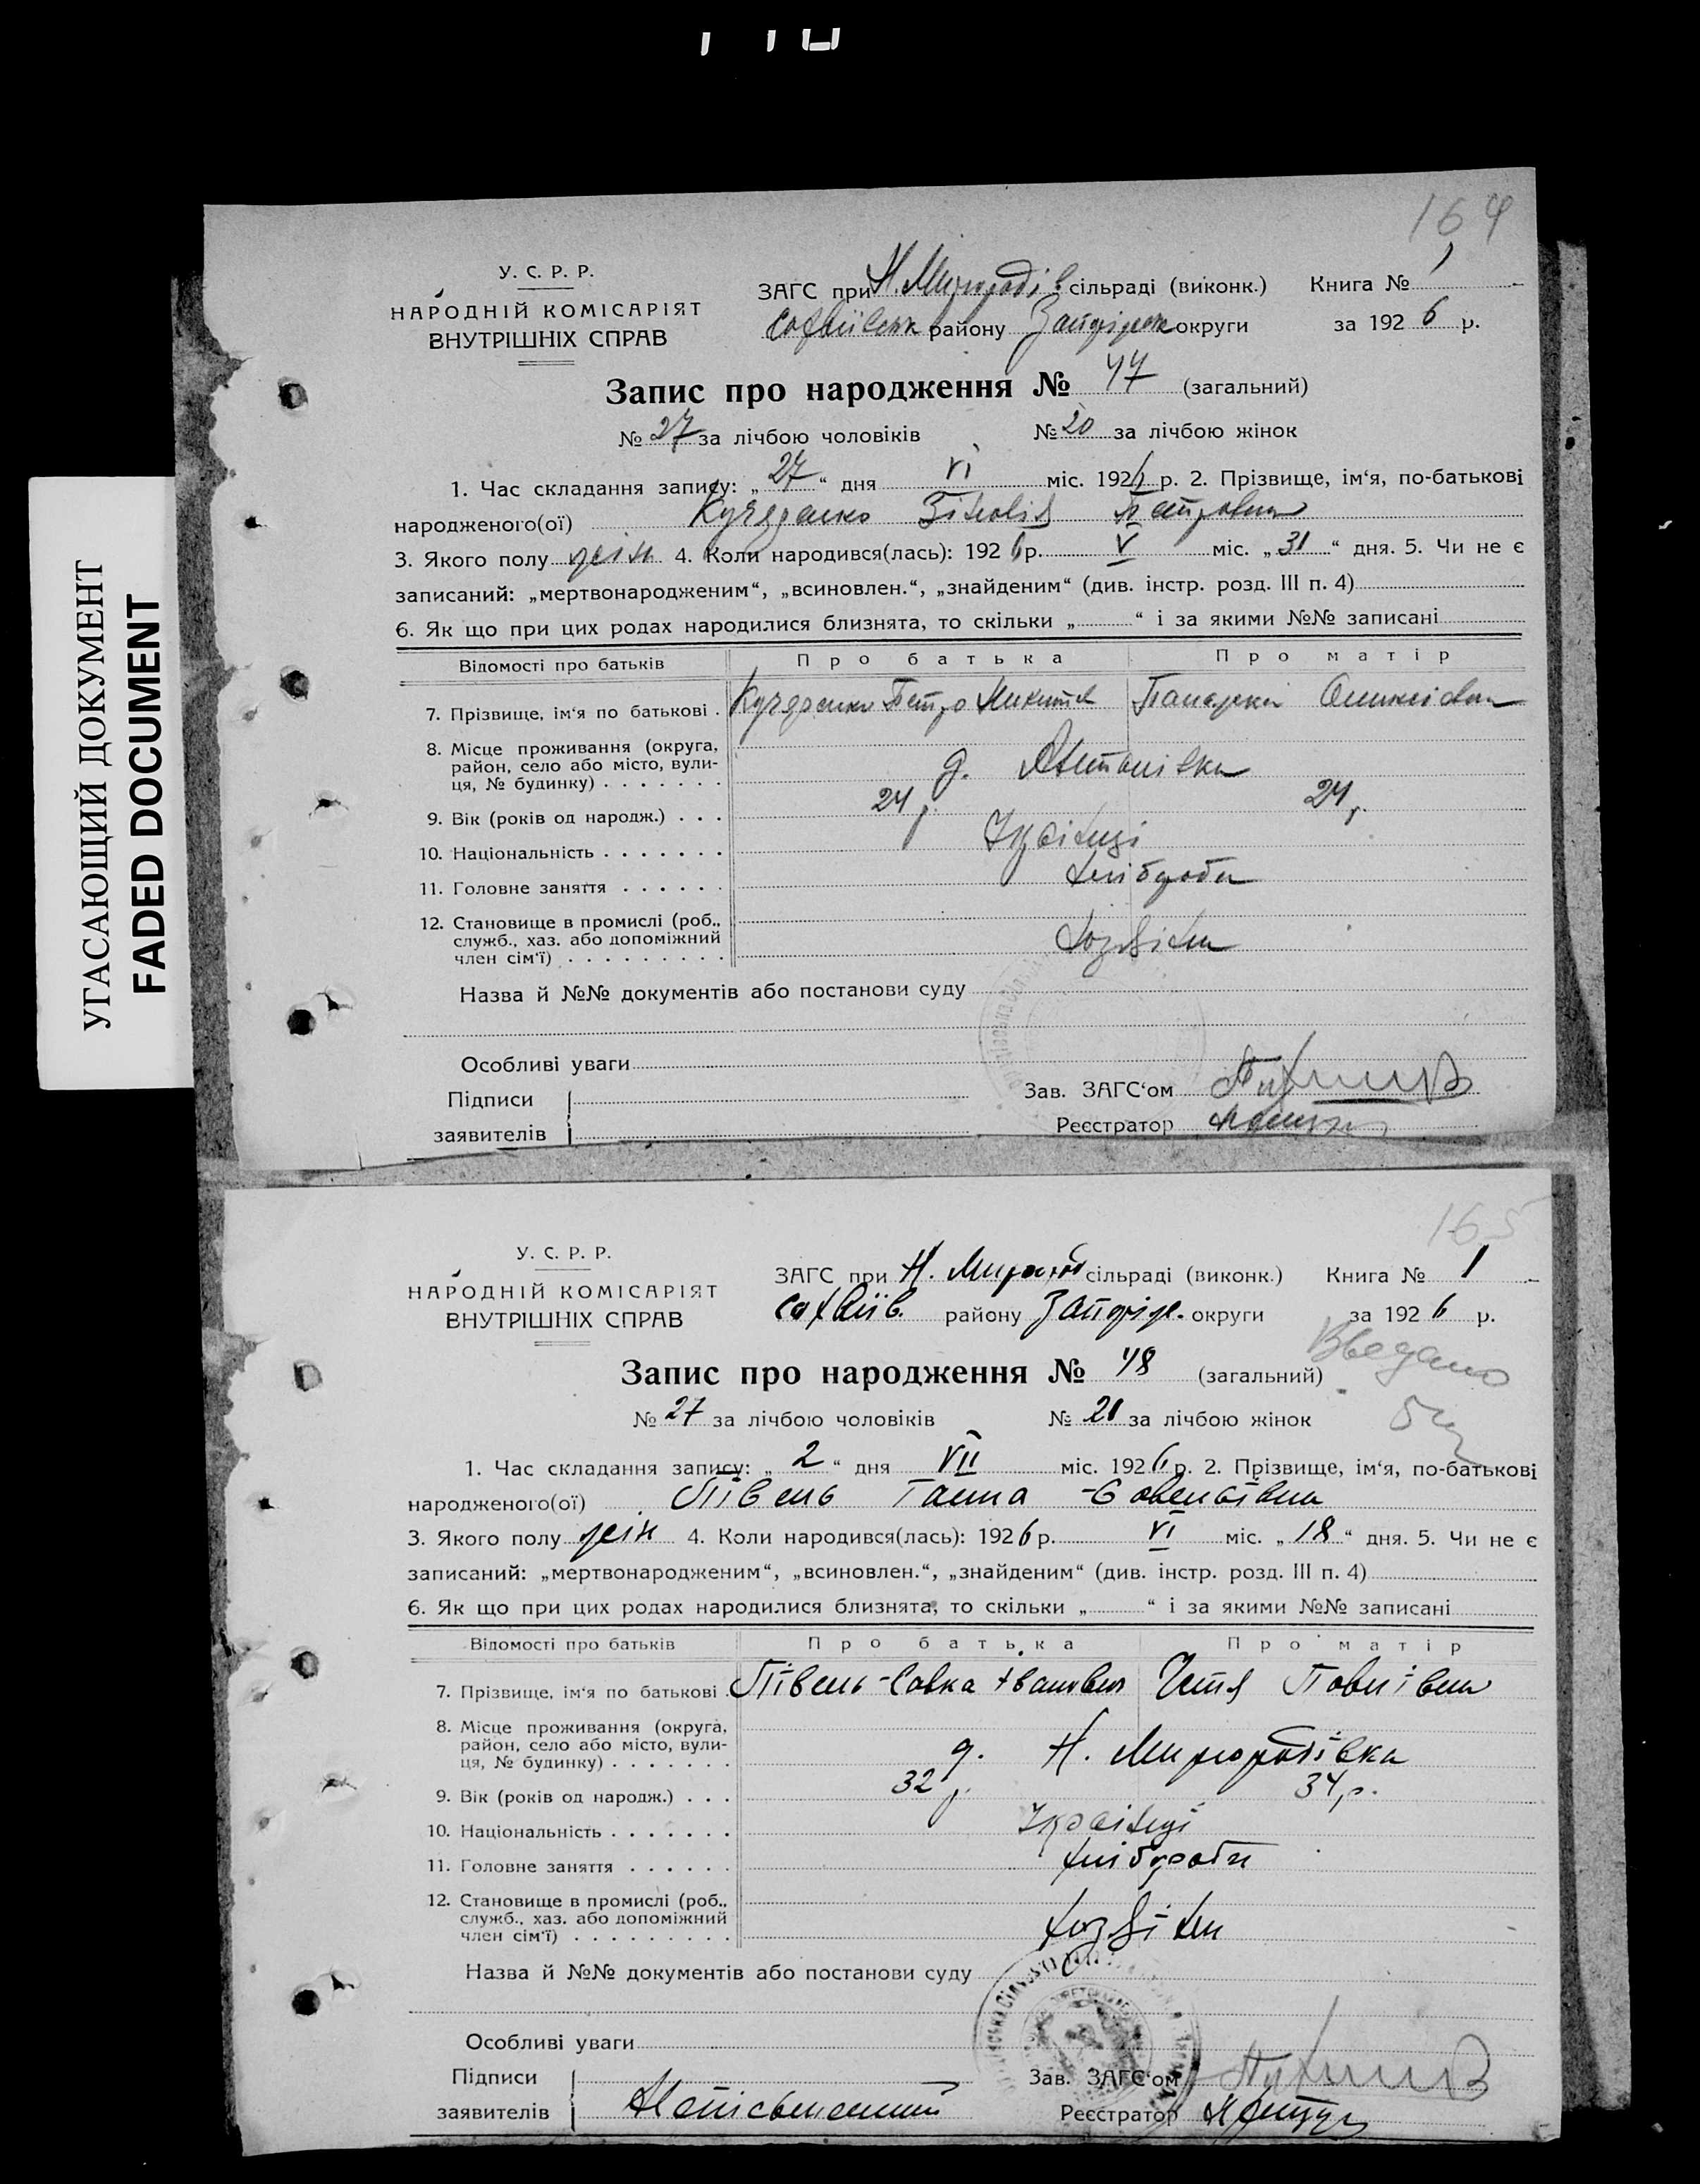 УГАСАЮЩИЙ ДОКУМЕНТ
FADED DOCUMENT
164
У. С. Р. Р.
НАРОДНІЙ КОМІСАРІЯТ
ВНУТРІШНІХ СПРАВ
ЗАГС при Н. Миргородів. сільраді (виконк.) Книга № 1
Софіївськ району округи за 1926 р.
Запис про народження № 47 (загальний)
№ 27 за лічбою чоловіків № 20 за лічбою жінок
1. Час складання запису: „27“ дня VI міс. 1926 р. 2. Прізвище, ім‘я, по-батькові
народженого(ої) Кучеренко Зіновія Петровна
3. Якого полу жін 4. Коли народився(лась): 1926 р. V міс. „31“ дня. 5. Чи не є
записаний: „мертвонародженим“, „всиновлен.“, „знайденим“ (див. інстр. розд. III п. 4)
6. Як що при цих родах народилися близнята, то скільки „ “ і за якими №№ записані
Відомості про батьків Про батька Про матір
7. Прізвище, ім‘я по батькові . Кучеренко Петро Микитов
8. Місце проживання (округа,
район, село або місто, вули-
ця, № будинку) . . . . . . . д.
9. Вік (років од народж.) . . . 24 р. 24 р.
10. Національність . . . . . . . Українці
11. Головне заняття . . . . . . хлібороби
12. Становище в промислі (роб.,
служб., хаз. або допоміжний
член сім‘ї) . . . . . . . . . хозяїни
Назва й №№ документів або постанови суду
Особливі уваги
Підписи Зав. ЗАГС‘ом
заявителів Реєстратор
165
У. С. Р. Р.
НАРОДНІЙ КОМІСАРІЯТ
ВНУТРІШНІХ СПРАВ
ЗАГС при Н. сільраді (виконк.) Книга № 1
Софіїв. району округи за 1926 р.
Введено
Запис про народження № 48 (загальний)
№ 27 за лічбою чоловіків № 21 за лічбою жінок
1. Час складання запису: „2“ дня VII міс. 1926 р. 2. Прізвище, ім‘я, по-батькові
народженого(ої) Півень Ганна
3. Якого полу жін 4. Коли народився(лась): 1926 р. VI міс. „18“ дня. 5. Чи не є
записаний: „мертвонародженим“, „всиновлен.“, „знайденим“ (див. інстр. розд. III п. 4)
6. Як що при цих родах народилися близнята, то скільки „ “ і за якими №№ записані
Відомості про батьків Про батька Про матір
7. Прізвище, ім‘я по батькові . Півень Савка Іванович Павлівна
8. Місце проживання (округа,
район, село або місто, вули-
ця, № будинку) . . . . . . . д. Н. Миргородівка
9. Вік (років од народж.) . . . 32 р. 34 р.
10. Національність . . . . . . . Українці
11. Головне заняття . . . . . . хлібороби
12. Становище в промислі (роб.,
служб., хаз. або допоміжний
член сім‘ї) . . . . . . . . . хозяїни
Назва й №№ документів або постанови суду
Особливі уваги
Підписи Зав. ЗАГС‘ом
заявителів Реєстратор